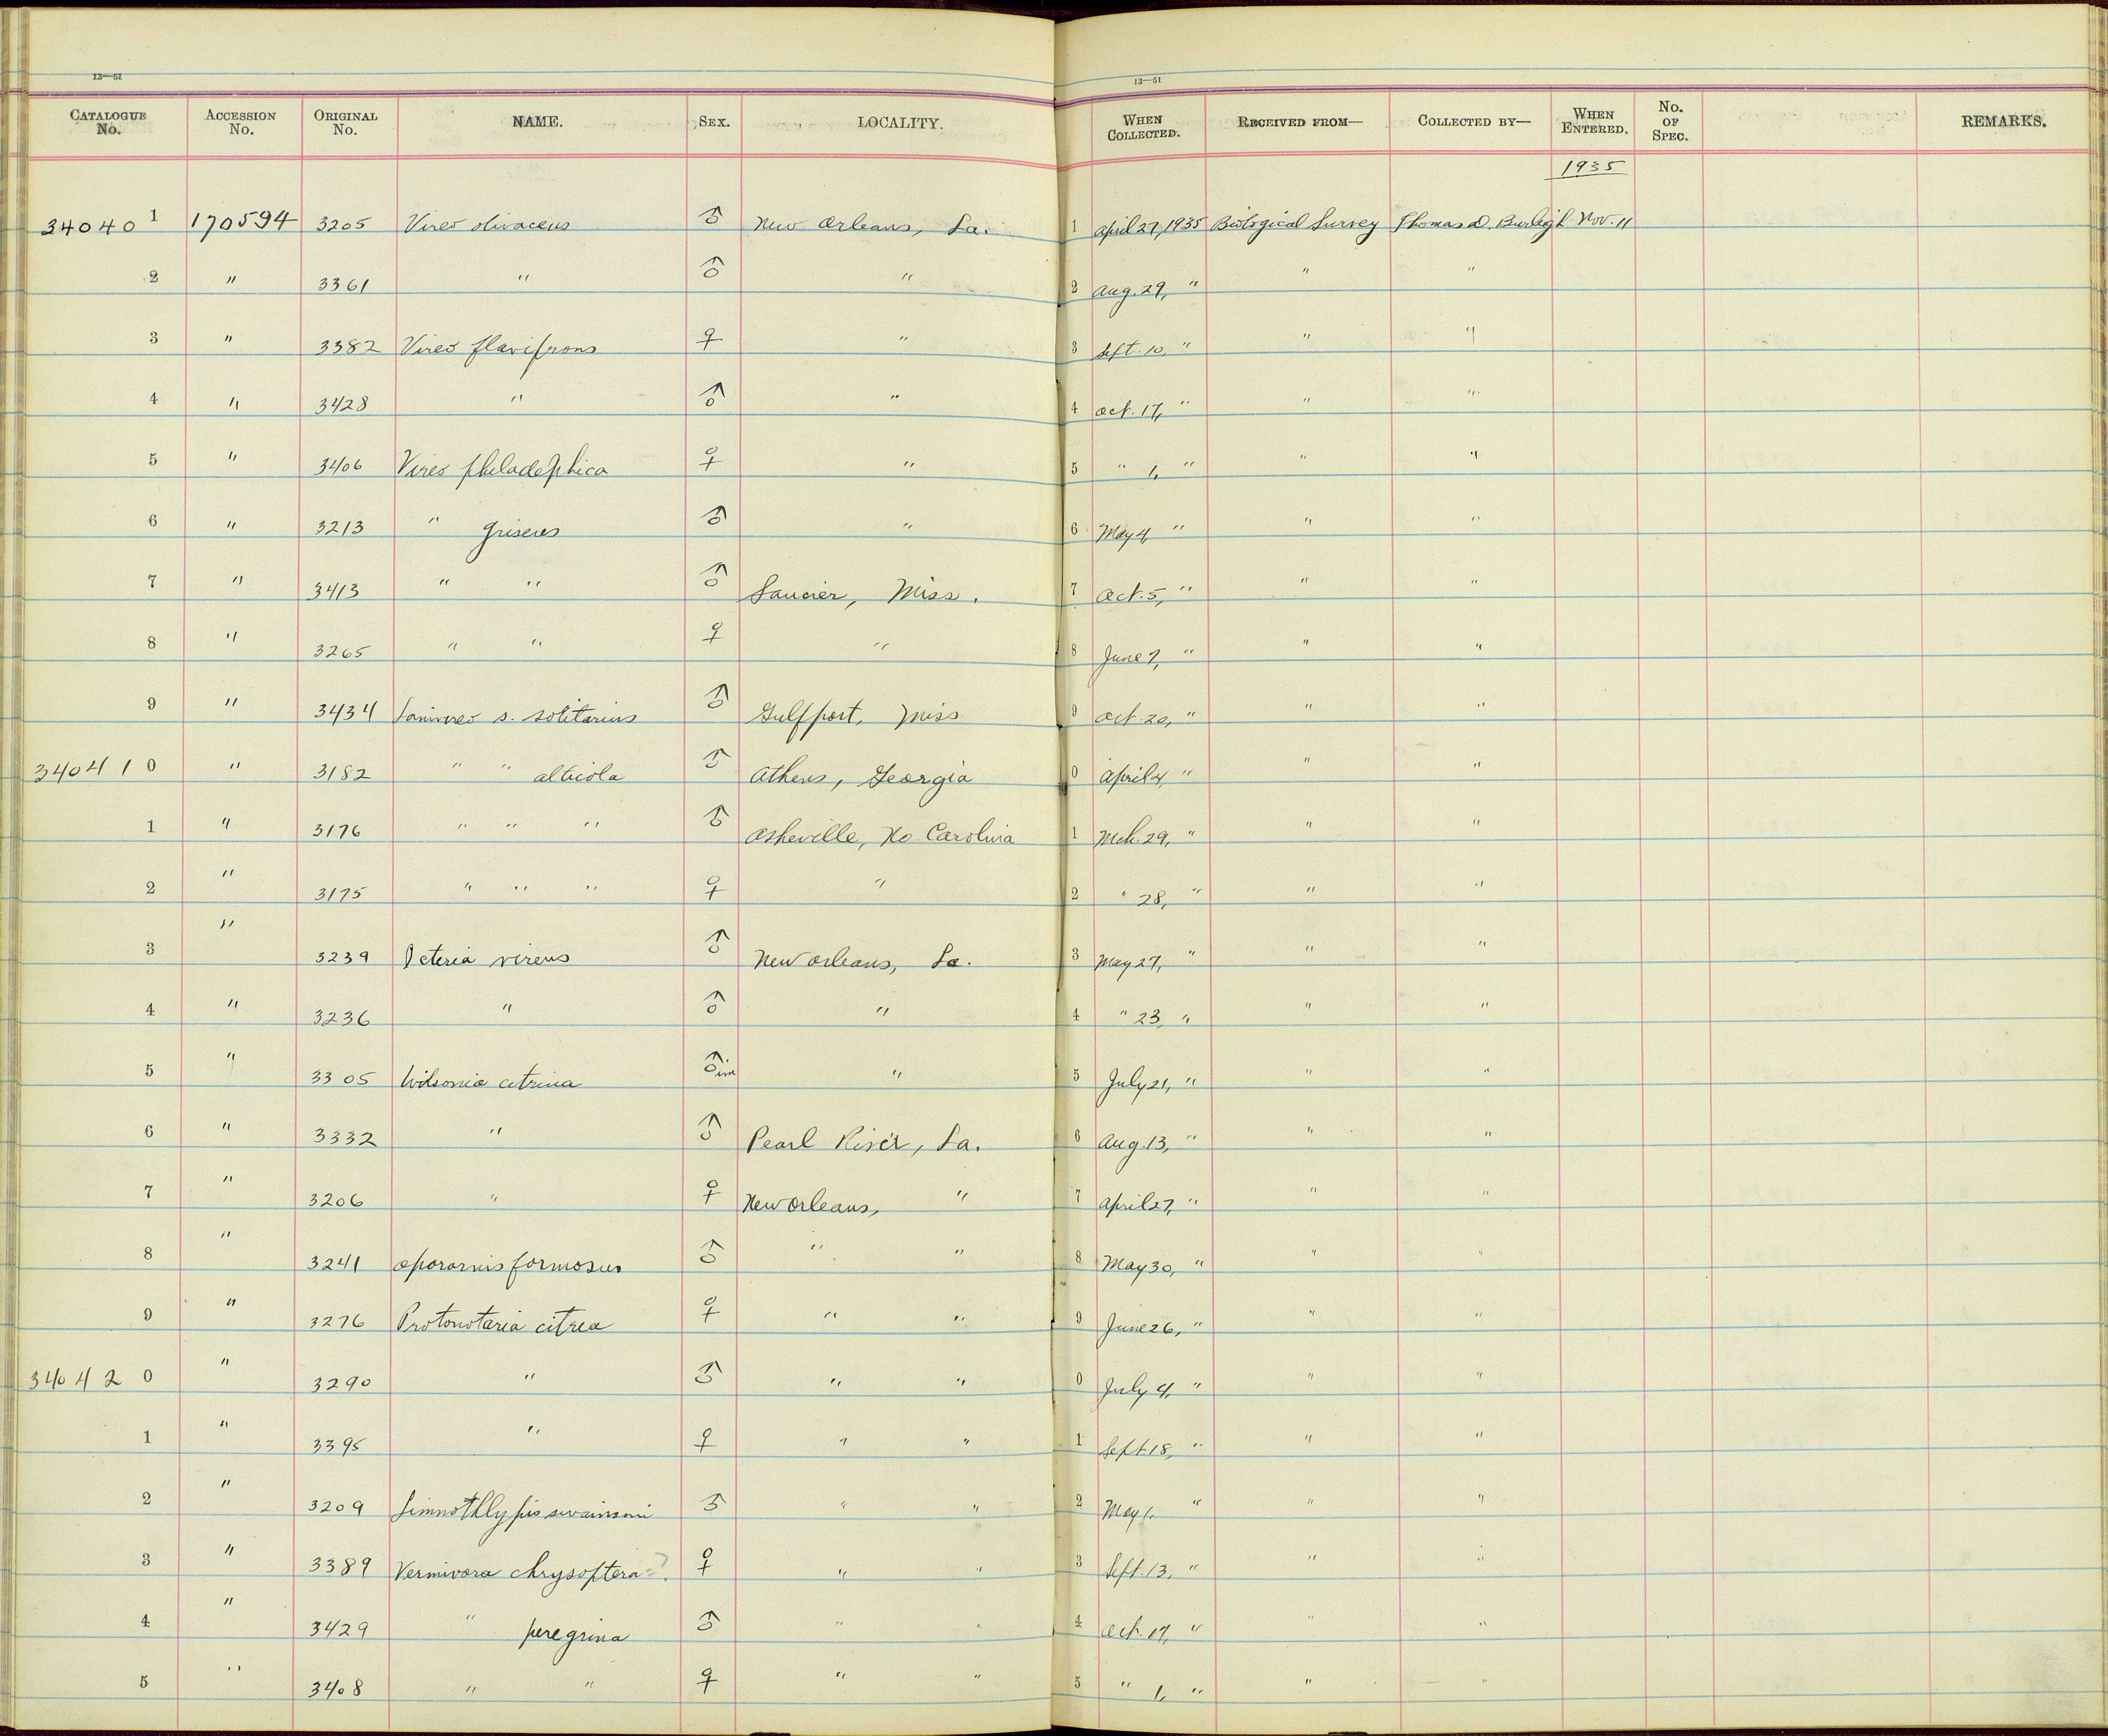 13—51 13—51
CATALOGUE No. ACCESSION No. ORIGINAL No. NAME. SEX. LOCALITY. WHEN COLLECTED. RECEIVED FROM— COLLECTED BY— WHEN ENTERED. No. OF SPEC. REMARKS.
1935
340401 170594 3205 Vireo olivaceus ♂ New Orleans, La. 1 April 27, 1935 Biological Survey Thomas D. Burleigh Nov. 11
2 " 3361 " ♂ " 2 Aug. 29, " " "
3 " 3382 Vireo flavifrons ♀ " 3 Sept. 10, " " "
4 " 3428 " ♂ " 4 Oct. 17, " " "
5 " 3406 Vireo philadelphica ♀ " 5 " 1, " " "
6 " 3213 " griseus ♂ " 6 May 4, " " "
7 " 3413 " " ♂ Saucier, Miss. 7 Oct. 5, " " "
8 " 3265 " " ♀ " 8 June 7, " " "
9 " 3434 Lanivireo s. solitarius ♂ Gulfport, Miss 9 Oct. 20, " " "
340410 " 3182 " " alticola ♂ Athens, Georgia 0 April 4, " " "
1 " 3176 " " " ♂ Asheville, No. Carolina 1 Mch. 29, " " "
2 " 3175 " " " ♀ " 2 " 28, " " "
3 " 3239 Icteria virens ♂ New Orleans, La. 3 May 27, " " "
4 " 3236 " ♂ " 4 " 23, " " "
5 " 3305 Wilsonia citrina ♂ im " 5 July 21, " " "
6 " 3332 " ♂ Pearl River, La. 6 Aug. 13, " " "
7 " 3206 " ♀ New Orleans, " 7 April 27, " " "
8 " 3241 Oporornis formosus ♂ " " 8 May 30, " " "
9 " 3276 Protonotaria citrea ♀ " " 9 June 26, " " "
340420 " 3290 " ♂ " " 0 July 4, " " "
1 " 3395 " ♀ " " 1 Sept 18, " " "
2 " 3209 Limnothlypis swainsoni ♂ " " 2 May 1. " " "
3 " 3389 Vermivora chrysoptera ?. ♀ " " 3 Sept. 13, " " "
4 " 3429 " peregrina ♂ " " 4 Oct. 17, " " "
5 " 3408 " " ♀ " " 5 " 1, " " "